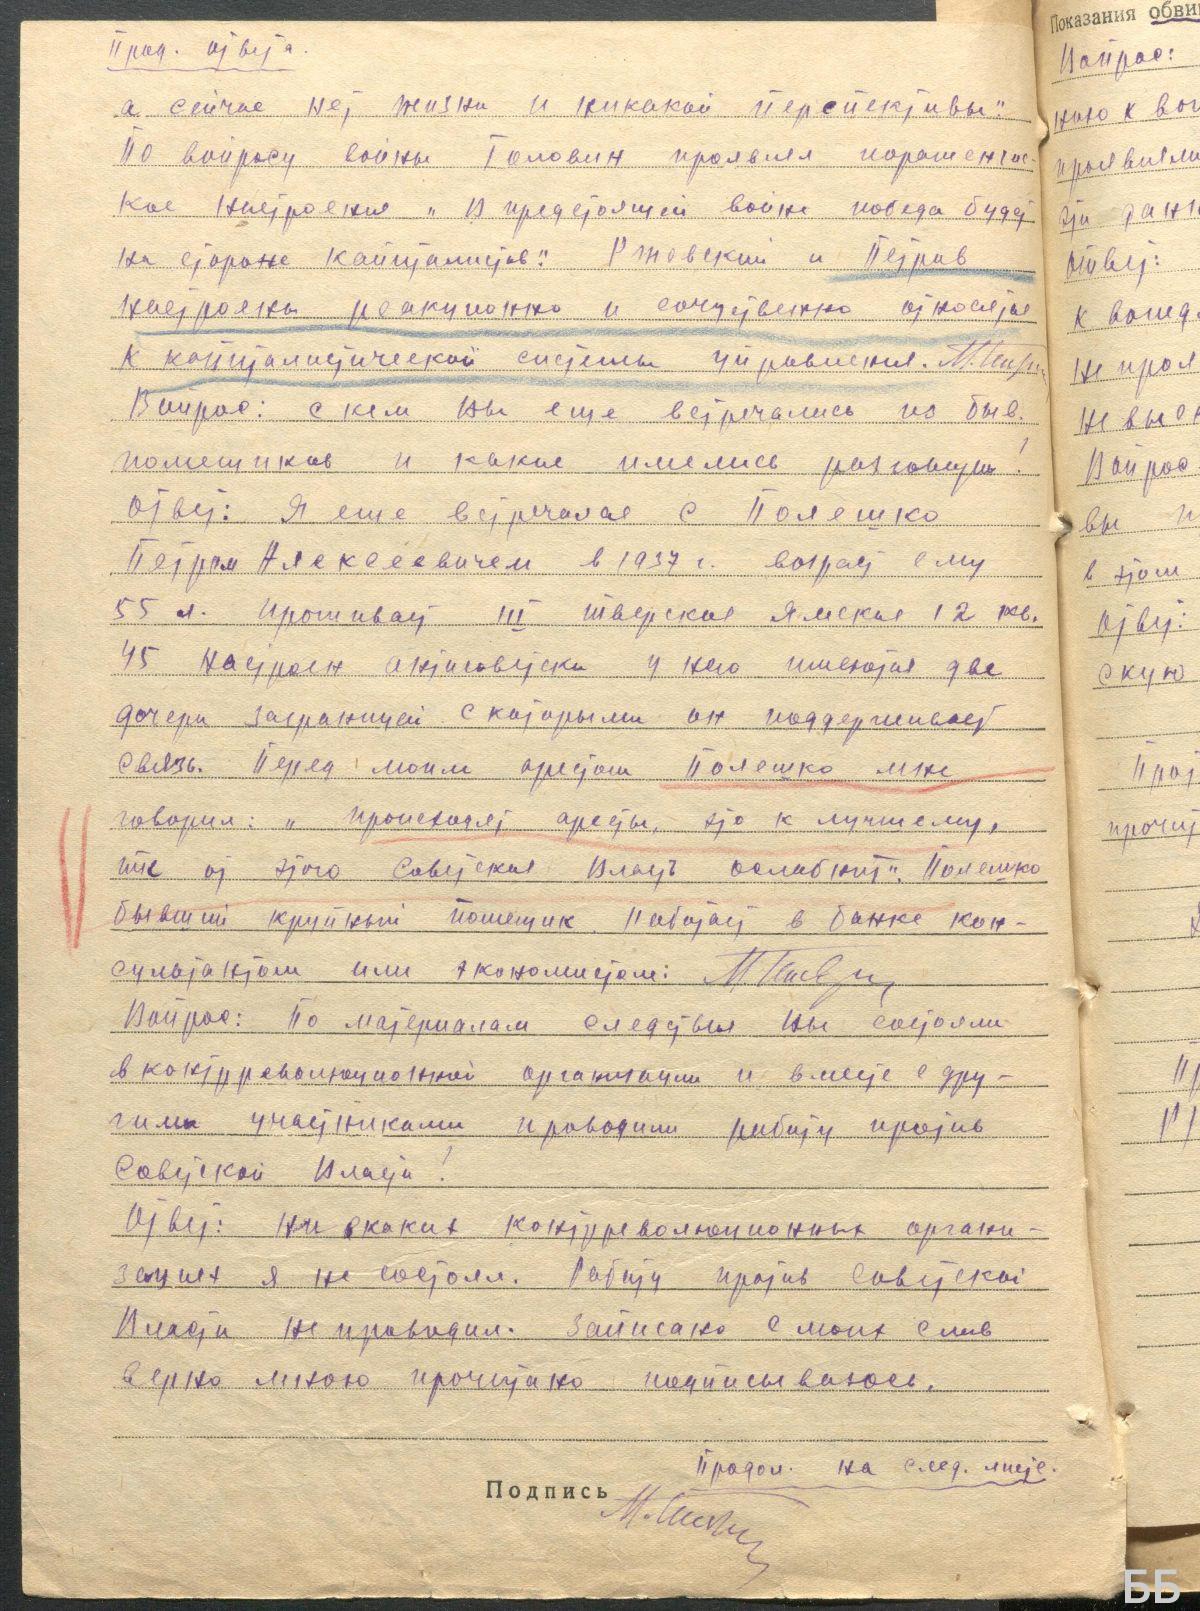 Прод. ответа.
а сейчас нет жизни и никакой перспективы".
По вопросу войны Головин проявлял пораженчес-
кое настроения „В предстоящей войне победа будет
на стороне капиталистов". Ржевский и Петров
настроены реакционно и сочувственно относятся
к капиталистической системы управления.
Вопрос: с кем вы еще встречались из быв.
помещиков и какие имелись разговоры?
Ответ: Я еще встречался с Полешко
Петром Алексеевичем в 1937 г. возраст ему
55 л. проживает III Тверская Ямская 12 кв.
45 настроен антисоветски у него имеются две
дочери заграницей с которыми он поддерживает
связь. Перед моим арестом Полешко мне
говорил: „происходят аресты, это к лучшему,
т.к. от этого Советская Власть ослабнит". Полешко
бывший крупный помещик. Работает в банке кон-
сультантом или экономистом.
Вопрос: По материалам следствия вы состояли
в контрреволюционной организации и вместе с дру-
гими участниками проводили работу против
Советской Власти!
Ответ: Ни в каких контрреволюционных органи-
зациях я не состоял. Работу против Советской
Власти не проводил. Записано с моих слов
верно мною прочитано подписываюсь.
Продол. на след. листе.
Подпись
Показания обви
Вопрос:
ною к вои
проявляли
эти данн
Ответ:
к вожд
не проя
не выск
Вопрос
вы
в этом
Ответ:
скую
прочит
ББ